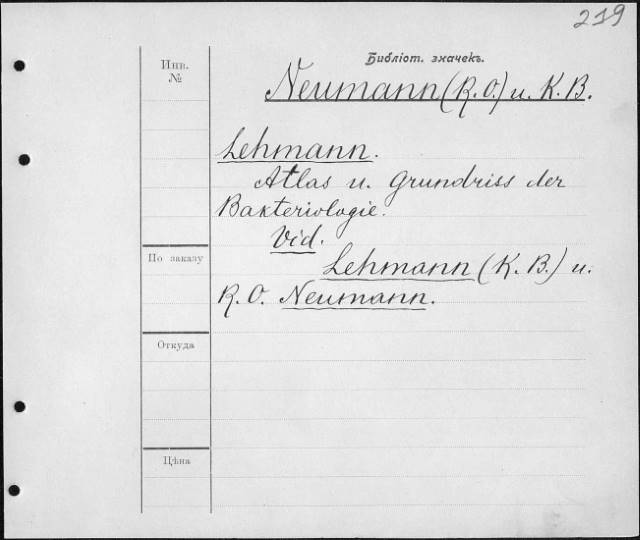 219
Библіот. значекъ.
Инв.
№
Neumann (R. O.) u. K. B.
Lehmann.
Atlas u. Grundriss der
Bakteriologie.
Vid.
По заказу
Lehmann (K. B.) u.
R. O. Neumann.
Откуда
Цѣна